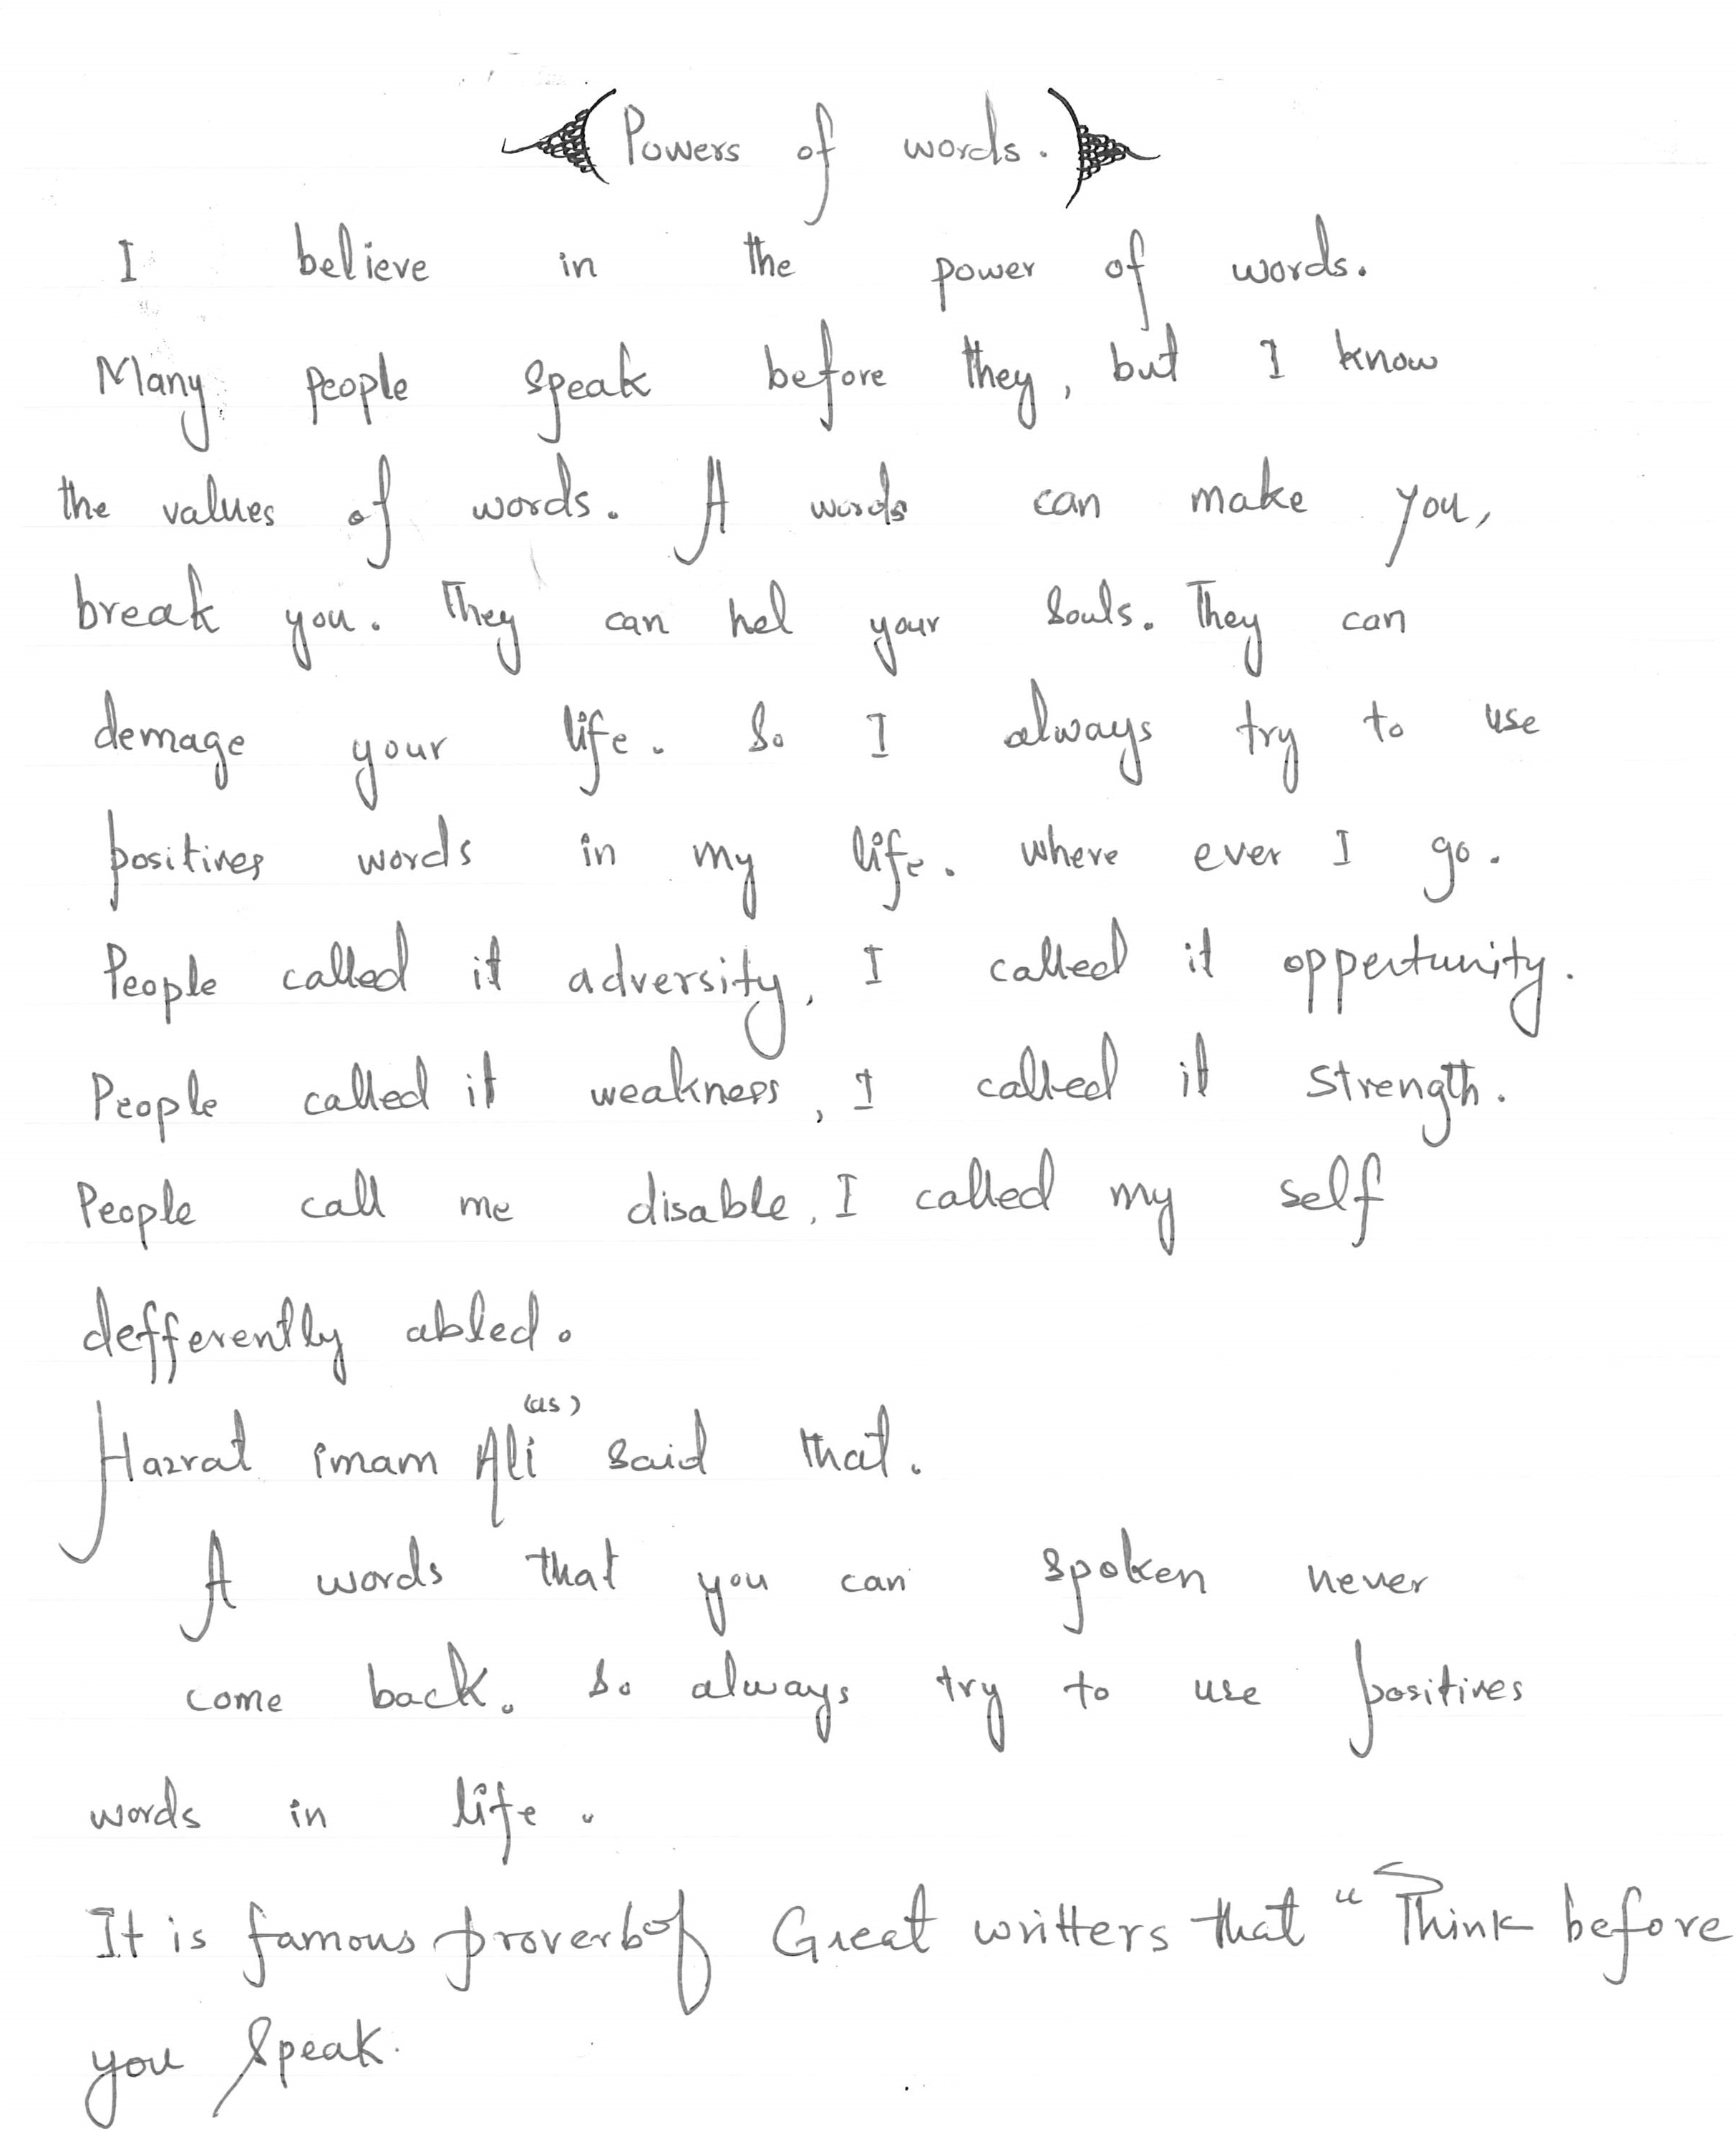 Powers of words.
I believe in the power of words.
Many people speak before they, but I know
the values of words. A words can make you,
break you. They can hel your souls. They can
demage your life. So I always try to use
positives words in my life. where ever I go.
People called it adversity, I called it oppertunity.
People called it weakness, I called it strength.
People call me disable, I called my self
defferently abled.
Hazrat imam Ali (as) said that.
A words that you can spoken never
come back. So always try to use positives
words in life.
It is famous proverb of Great writters that "Think before
you speak.